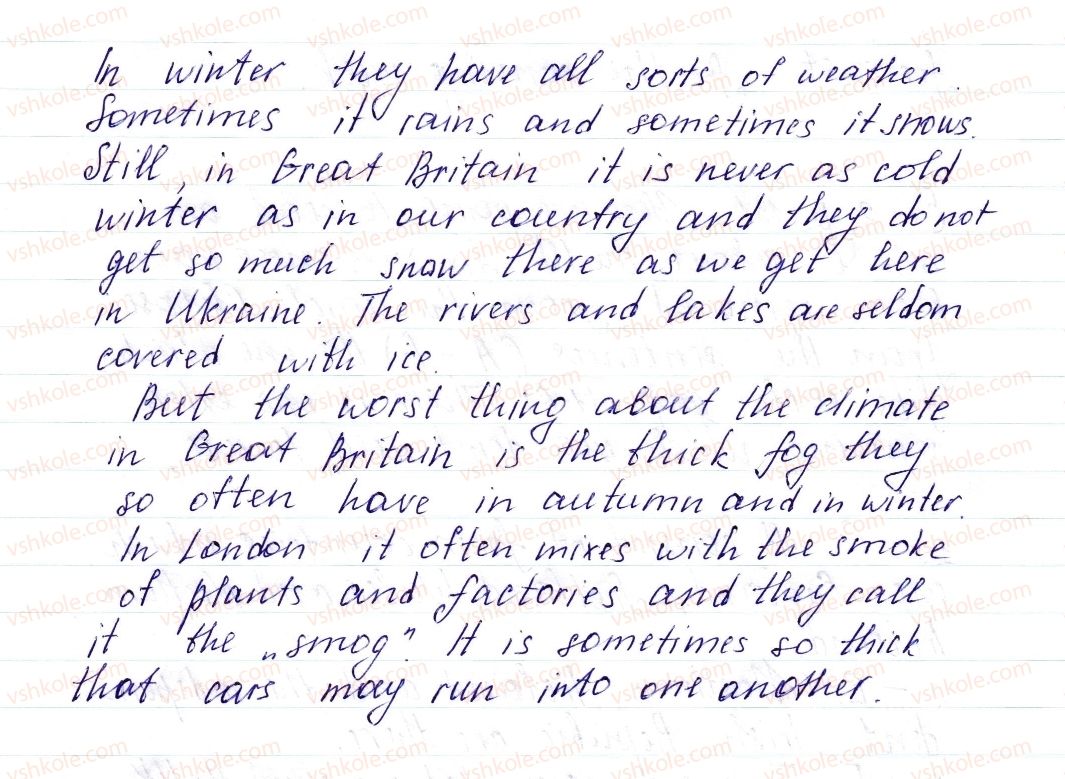 In winter they have all sorts of weather.
Sometimes it rains and sometimes it snows.
Still, in Great Britain it is never as cold
winter as in our country and they do not
get so much snow there as we get here
in Ukraine. The rivers and lakes are seldom
covered with ice.
But the worst thing about the climate
in Great Britain is the thick fog they
so often have in autumn and in winter.
In London it often mixes with the smoke
of plants and factories and they call
it the „smog". It is sometimes so thick
that cars may run into one another.